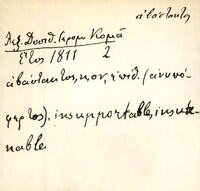 ἀβάστακτος
Λεξ. Δοσιθ. Ἱερομ. Κομᾶ
Ἔτος 1811 2
ἀβάστακτος, κ, ον, ἐπίθ. (ἀνυπό-
φερτος). insupportable, inste-
nable